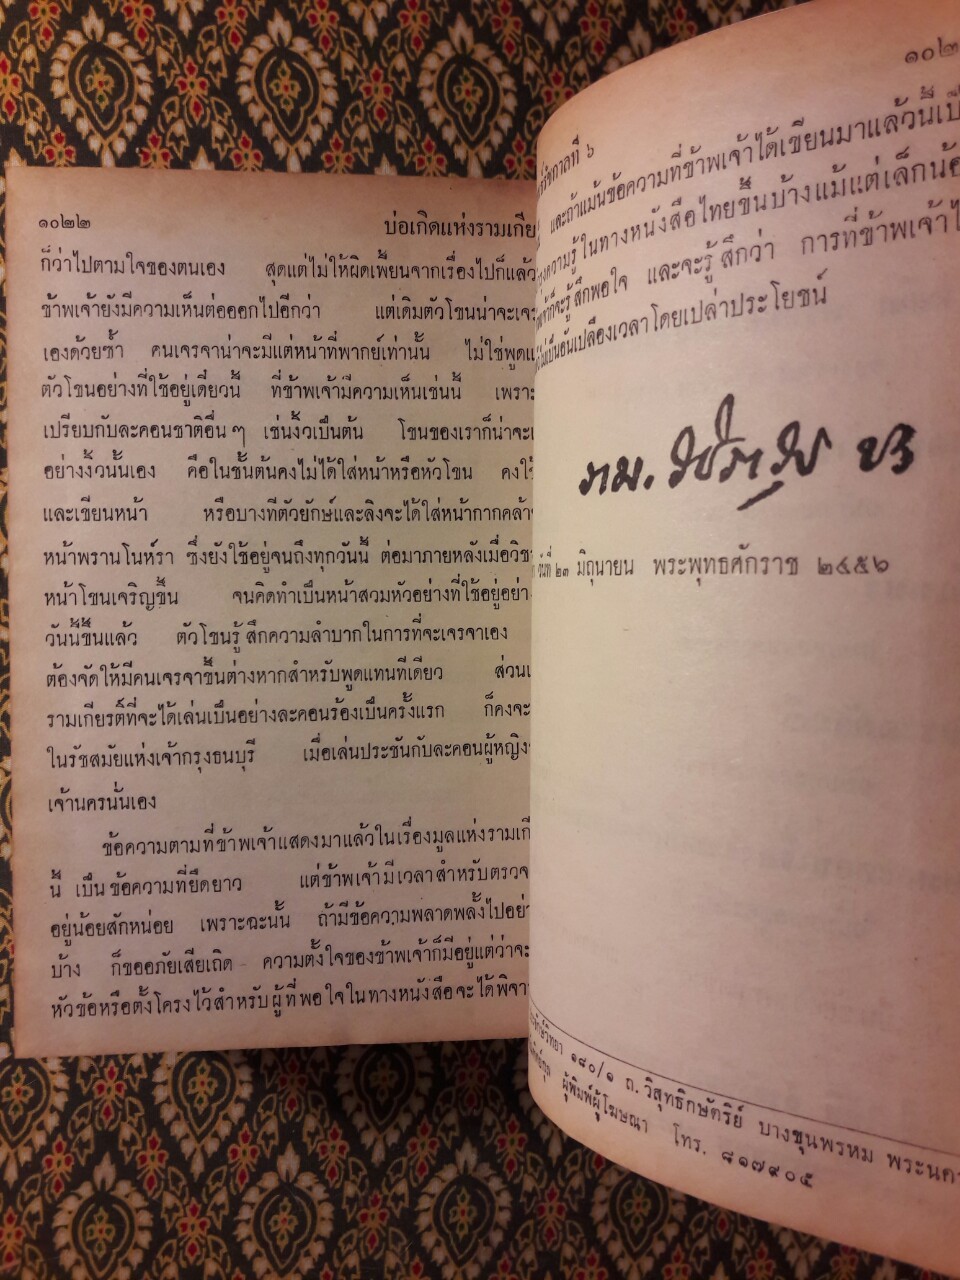 ๑๐๒๒
บ่อเกิดแห่งรามเกีย
ก็ว่าไปตามใจของตนเอง สุดแต่ไม่ให้ผิดเพี้ยนจากเรื่องไปก็แล้ว
ข้าพเจ้ายังมีความเห็นต่อออกไปอีกว่า แต่เดิมตัวโขนน่าจะเจร
เองด้วยซ้ำ คนเจรจาน่าจะมีแต่หน้าที่พากย์เท่านั้น ไม่ใช่พูดแ
ตัวโขนอย่างที่ใช้อยู่เดี๋ยวนี้ ที่ข้าพเจ้ามีความเห็นเช่นนี้ เพราะ
เปรียบกับละคอนชาติอื่นๆ เช่นงิ้วเป็นต้น โขนของเราก็น่าจะเ
อย่างงิ้วนั้นเอง คือในชั้นต้นคงไม่ได้ใส่หน้าหรือหัวโขน คงใช้
และเขียนหน้า หรือบางทีตัวยักษ์และลิงจะได้ใส่หน้ากากคล้าย
หน้าพรานโนห์รา ซึ่งยังใช้อยู่จนถึงทุกวันนี้ ต่อมาภายหลังเมื่อวิช
หน้าโขนเจริญขึ้น จนคิดทำเป็นหน้าสวมหัวอย่างที่ใช้อยู่อย่าง
วันนี้ขึ้นแล้ว ตัวโขนรู้สึกความลำบากในการที่จะเจรจาเอง
ต้องจัดให้มีคนเจรจาขึ้นต่างหากสำหรับพูดแทนทีเดียว ส่วนเ
รามเกียรติ์ที่จะได้เล่นเป็นอย่างละคอนร้องเป็นครั้งแรก ก็คงจะ
ในรัชสมัยแห่งเจ้ากรุงธนบุรี เมื่อเล่นประชันกับละคอนผู้หญิง
เจ้านครนั่นเอง
ข้อความตามที่ข้าพเจ้าแสดงมาแล้วในเรื่องมูลแห่งรามเกี
นี้ เป็นข้อความที่ยืดยาว แต่ข้าพเจ้ามีเวลาสำหรับตรวจ
อยู่น้อยสักหน่อย เพราะฉะนั้น ถ้ามีข้อความพลาดพลั้งไปอย่า
บ้าง ก็ขออภัยเสียเถิด ความตั้งใจของข้าพเจ้าก็มีอยู่แต่ว่าจะ
หัวข้อหรือตั้งโครงไว้สำหรับผู้ที่พอใจในทางหนังสือจะได้พิจา
๑๐๒
รัชกาลที่ ๖
และถ้าแม้นข้อความที่ข้าพเจ้าได้เขียนมาแล้วนี้เป็
ความรู้ในทางหนังสือไทยขึ้นบ้างแม้แต่เล็กน้อ
ก็จะรู้สึกพอใจ และจะรู้สึกว่า การที่ข้าพเจ้าไ
ไม่เป็นอันเปลืองเวลาโดยเปล่าประโยชน์
ราม. วชิราวุธ ปร
วันที่ ๒๓ มิถุนายน พระพุทธศักราช ๒๔๕๖
๑๘๐/๑ ถ. วิสุทธิกษัตริย์ บางขุนพรหม พระนคร
ผู้พิมพ์ผู้โฆษณา โทร. ๘๑๗๙๐๕